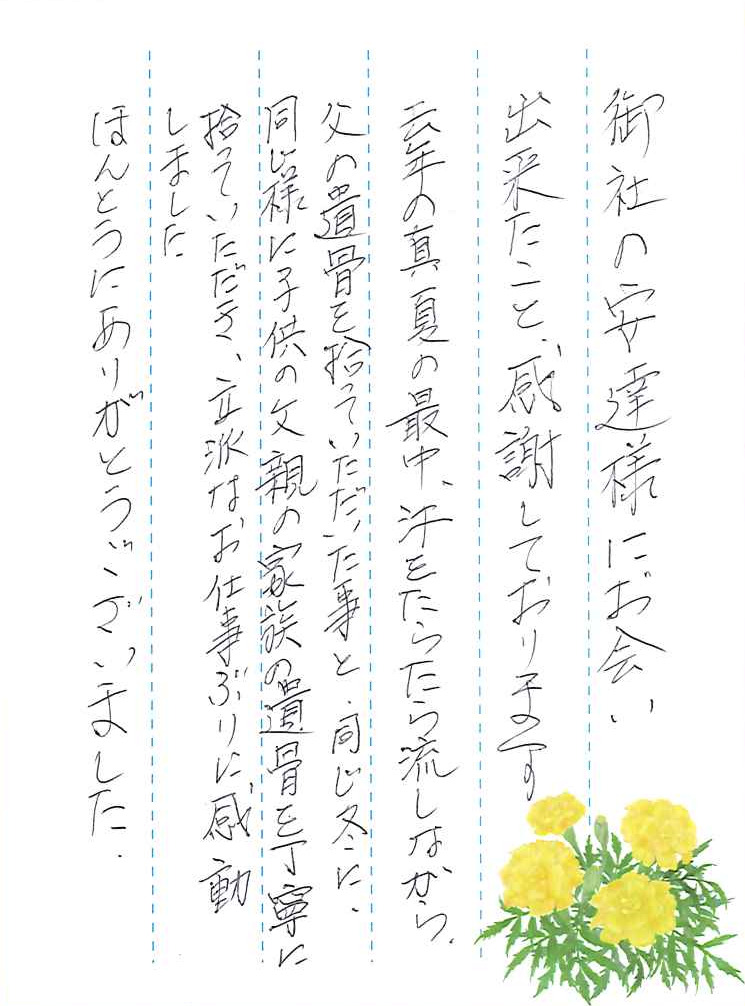 御社の安達様にお会い
出来たこと、感謝しております
去年の真夏の最中、汗をたらたら流しながら、
父の遺骨を拾っていただいた事と、同じ冬に、
同じ様に子供の父親の家族の遺骨を丁寧に
拾っていただき、立派なお仕事ぶりに感動
しました
ほんとうにありがとうございました.